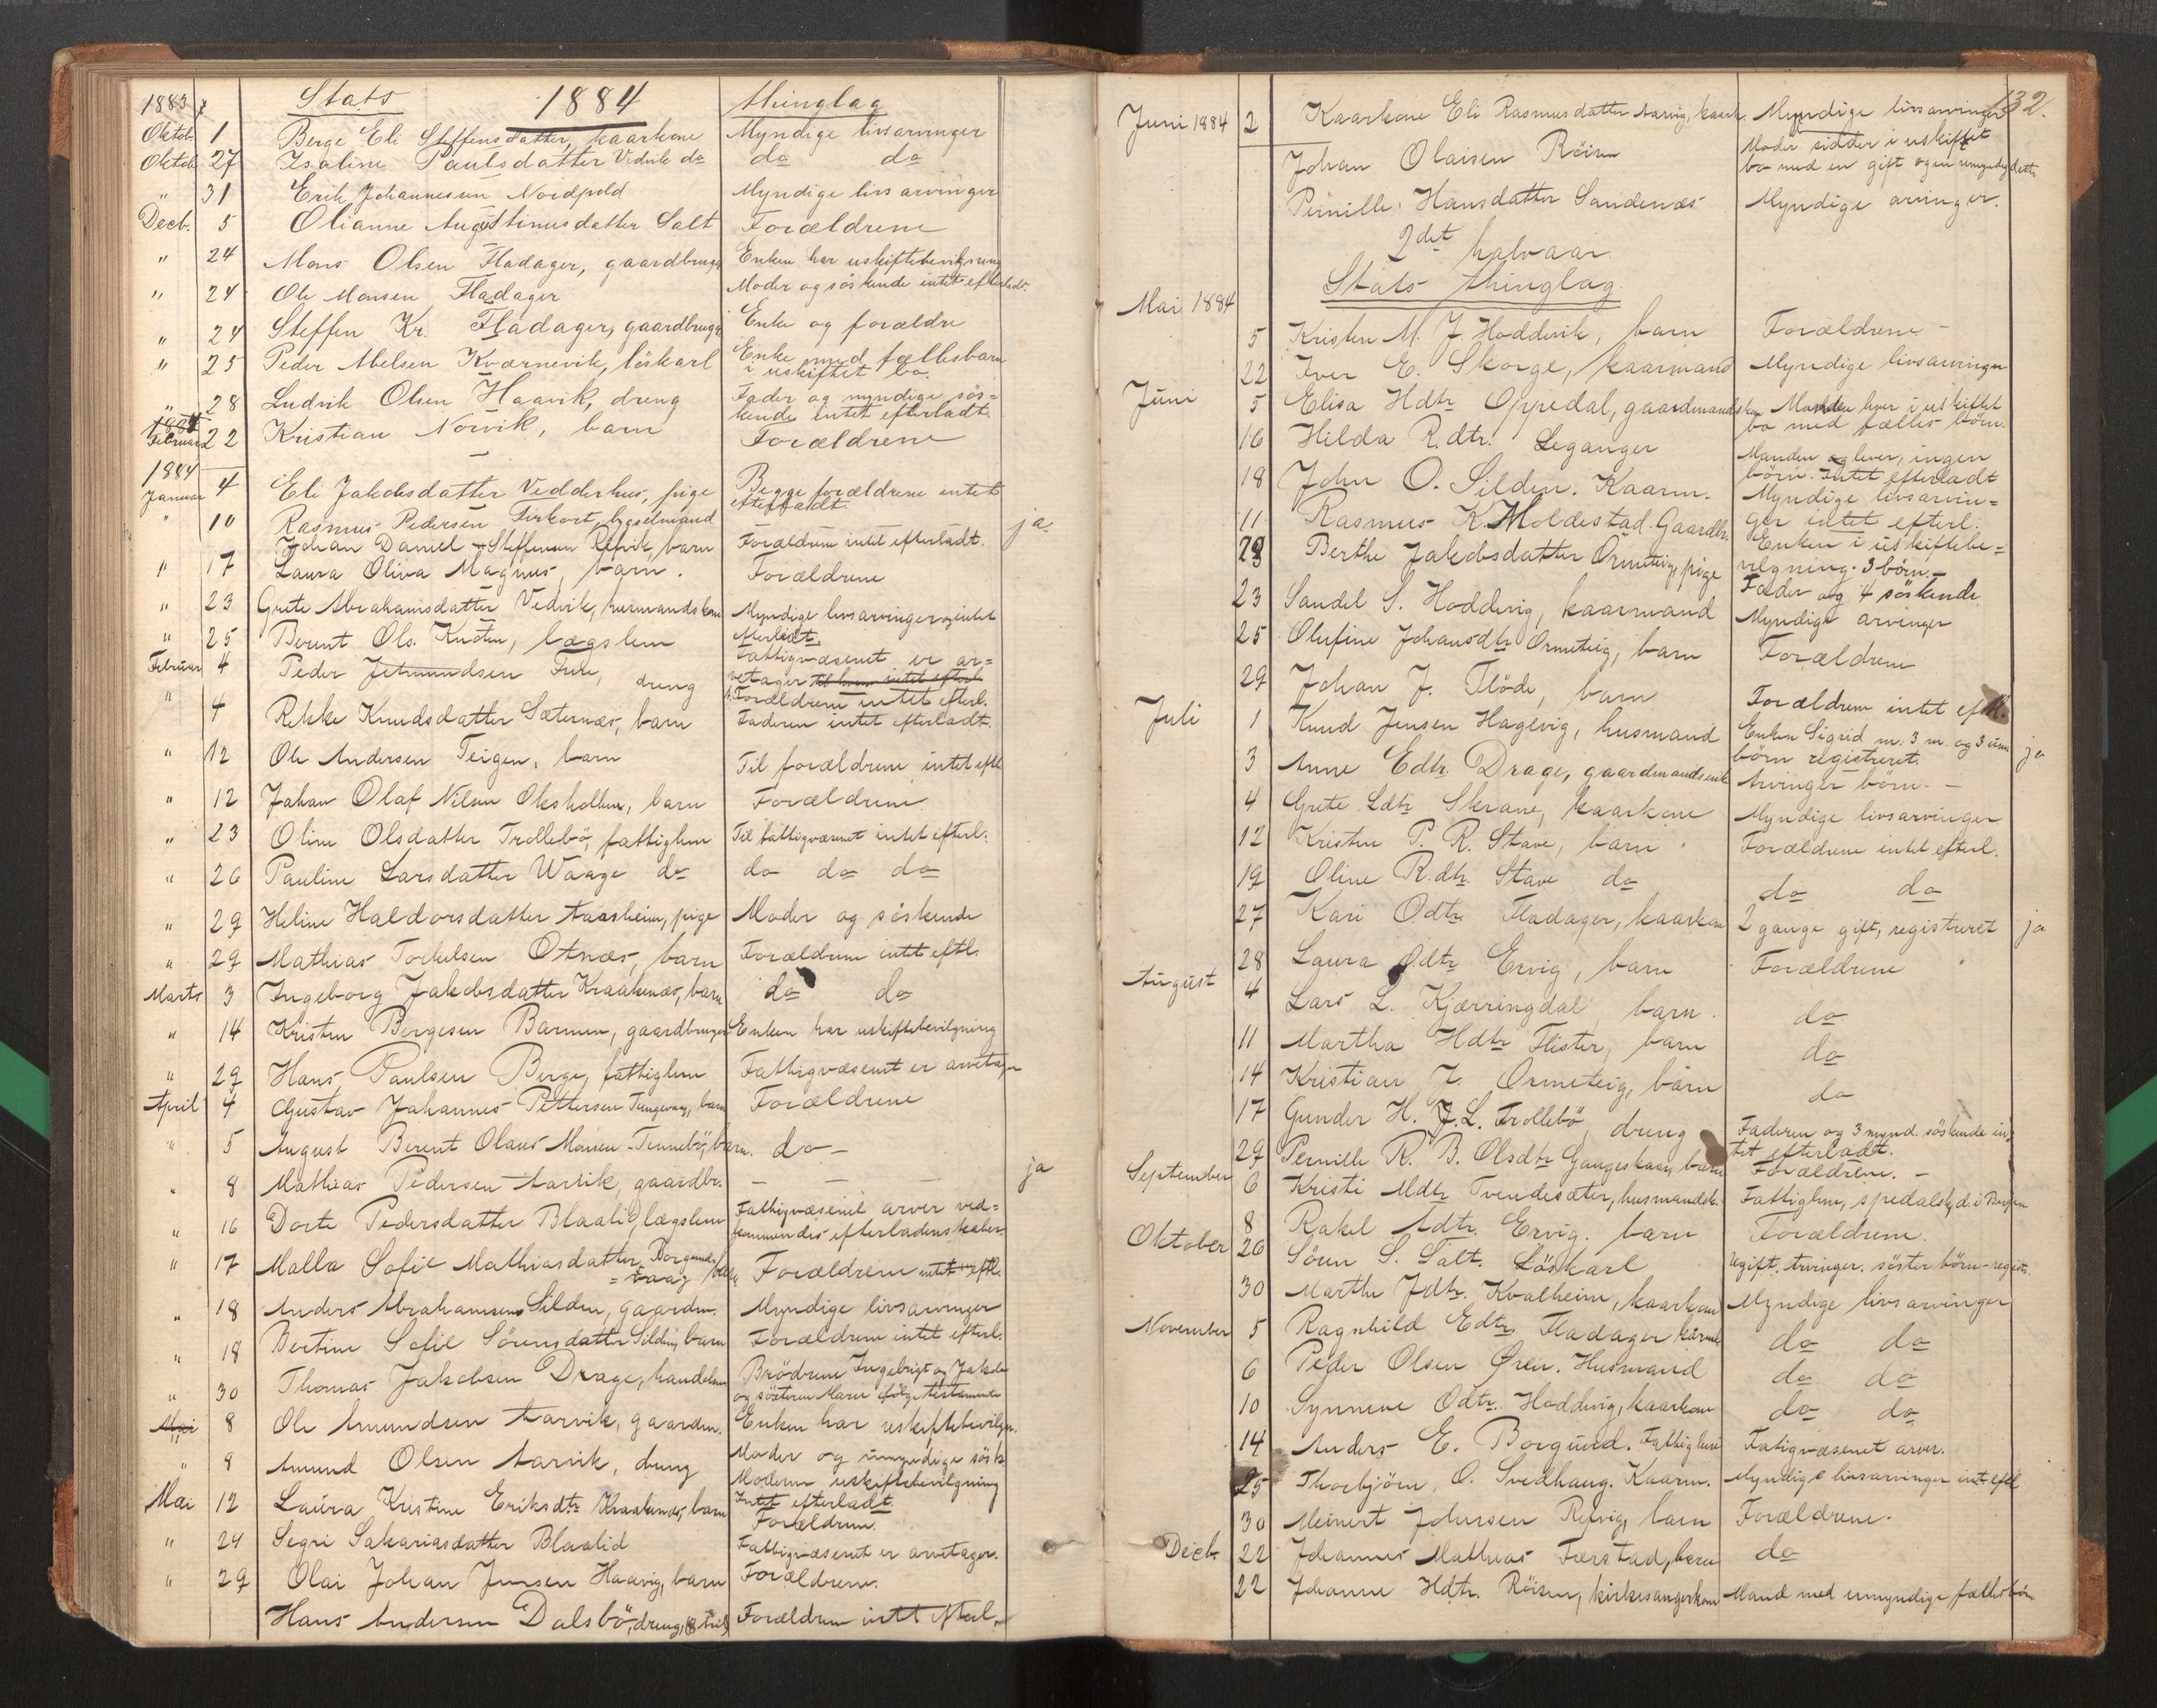 Stats 1884 thinglag
1883
Oktob. 1 Berge Eli Steffensdatter, kaarkone Myndige livsarvinger
Oktob 27 Isaline Paulsdatter Vedvik do do do
" 31 Erik Johannesen Nordpold Myndige livsarvinger
Decb. 5 Olianne Augustinusdatter Salt Forældrene
" 24 Mons Olsen Fladager, gaardbruger Enken har uskiftebevilgning
" 24 Ole Monsen Fladager Moder og söskende intet efterladt.
" 24 Steffen Kr. Fladager, gaardbruger Enke og forældre
" 25 Peder Abelsen Kværnevik, löskarl Enke med fællesbarn
i uskiftet bo.
" 28 Ludvik Olsen Haavik, dreng Fader og myndige sös=
kende intet efterladt.
1884 Februar 22 Kristian Norvik, barn Forældrene
1884
Januar 4 Eli Jakobsdatter Vedderhus, pige Begge forældrene intet
efterladt.
" 10 Rasmus Pedersen Firkort, bygselmand ja
Johan Daniel Steffensen Refvik, barn Forældrene intet efterladt.
" 17 Laura Oliva Magnus, barn. Forældrene
" 23 Grete Abrahamsdatter Vedvik, husmandskone Myndige livsarvinger, intet
efterladt.
" 25 Berent Ols. Knoten, lægslem Fattigvæsenet er ar=
Februar 4 Peder Jetmundsen Fure, dreng vetager til hvem intet efterl.
Forældrene intet efterl.
" 4 Rikke Knudsdatter Sæternæs, barn Faderen intet efterladt.
" 12 Ole Andersen Teigen, barn Til forældrene intet eftl.
" 12 Johan Olaf Nilsen Oksholm, barn Forældrene
" 23 Oline Olsdatter Trollebö, fattiglem Til fattigvæsenet intet efterl.
" 26 Pauline Larsdatter Waage do do do do
" 29 Heline Haldorsdatter Aarsheim, pige Moder og söskende
" 29 Mathias Torkelsen Otnæs, barn Forældrene intet eftl.
Marts 3 Ingeborg Jakobsdatter Kraakenæs, barn do do
" 14 Kristen Börgesen Barmen, gaardbruger Enken har uskiftebevilgning
" 29 Hans Paulsen Berge, fattiglem Fattigvæsenet er arvetager
April 4 Gustav Johannes Pettersen Tungevaag, barn Forældrene
" 5 August Berent Olaus Monsen Tennebö, barn. do —
" 8 Mathias Pedersen Aarvik, gaardbr. — — — ja
" 16 Dorte Pedersdatter Blaalid, lægslem Fattigvæsenet arver ved=
kommendes efterladenskaber.
" 17 Malla Sofie Mathiasdatter Borgunds=
vaag barn Forældrene intet eftl.
" 18 Anders Abrahamsens Silden, gaardm. Myndige livsarvinger
" 18 Bertine Sofie Sörensdatter Silden, barn Forældrene intet efterl.
" 30 Thomas Jakobsen Drage, handelsm Brödrene Ingebrigt og Jakob
og sösteren Marie ifölge testamente
Mai 8 Ole Amundsen Aarvik, gaardm. Enken har uskiftebevilgn.
" 8 Amund Olsen Aarvik, dreng Moder og umyndige sösk
Moderen uskiftebevilgning
Mai 12 Laura Kristine Eriksdtr Kraakenæs, barn Intet efterladt.
Forældrene.
" 24 Segri Sakariasdatter Blaalid Fattigvæsenet er arvetager.
" 29 Olai Johan Jensen Haavig, barn Forældrene.
Hans Andersen Dalsbö, dreng, Forældrene intet efterl.
132.
Juni 1884 2 Kaarkone Eli Rasmusdatter Aarvig, kaark. Myndige livsarvinger
Johan Olaisen Röisen Moder sidder i uskiftet
bo med en gift og en umyndig datter
Pernille Hansdatter Sandenæs Myndige arvinger.
2det halvaar
Stats thinglag
Mai 1884
5 Kristen M. J. Hoddevik, barn Forældrene —
22 Iver E. Skorge, kaarmand Myndige livsarvinger
Juni 5 Elisa Hdtr Oppedal, gaardmandsk. Manden lever i uskiftet
bo med fælles börn.
16 Hilda R.dtr. Leganger Manden lever, ingen
börn. Intet efterladt
18 John O. Silden. Kaarm. Myndige livsarvin=
ger intet efterl.
11 Rasmus K. Moldestad. Gaardbr. Enken i uskiftebe=
vilgning. 3 börn. —
29 Berthe Jakobsdatter Ormeteig, pige Fader og 4 söskende
23 Sandel S. Hoddevig, kaarmand Myndige arvinger
25 Olufine Johansdtr Ormeteig, barn Forældrene
29 Johan J. Flöde, barn Forældrene intet eftl.
Juli 1 Knud Jensen Hagevig, husmand Enken Sigrid m. 3 m. og 3 um
börn registreret. ja
3 Anne Edtr. Drage, gaardmandsenke Arvinger börn. —
4 Grete Ldtr Skrane, kaarkone Myndige livsarvinger
12 Kristen P. R. Stave, barn. Forældrene intet efterl.
19 Oline R.dtr. Stave do do do
27 Kari Odtr Fladager, kaarkone 2 gange gift, registreret ja
28 Laura Odtr Ervig, barn Forældrene
August 4 Lars L. Kjærringdal barn. do
11 Martha Hdtr Flister, barn do
14 Kristian J. Ormeteig, barn do
17 Gunder H. J. L. Trollebö dreng Faderen og 3 mynd. söskende in=
tet efterladt.
29 Pernille R. B. Olsdtr barn Forældrene. —
September 6 Kristi Mdtr Tvendesæter, husmandsk. Fattiglem, spedalsk, d. i Bergen
8 Rakel Adtr. Ervig. barn Forældrene.
Oktober 26 Sören S. Salt. Löskarl Ugift. Arvinger. söster börn – registr.
30 Marthe Jdtr. Kvalheim, kaarkone Myndige livsarvinger
November 5 Ragnhild Edtr. Fladager do do
6 Peder Olsen Ören. Husmand do do
10 Synneve Odtr. Hoddevig, kaarkone do do
14 Anders E. Borgund. Fattiglem Fatigvæsenet arver.
25 Thorbjörn O. Svedhaug. Kaarm. Myndige livsarvinger int eftl
30 Meinert Johnsen Refvig, barn Forældrene.
Decb. 22 Johannes Mathias Færstad, barn do
22 Johanne Hdtr. Röisen, kirkesangerkone Mand med umyndige fællesbörn